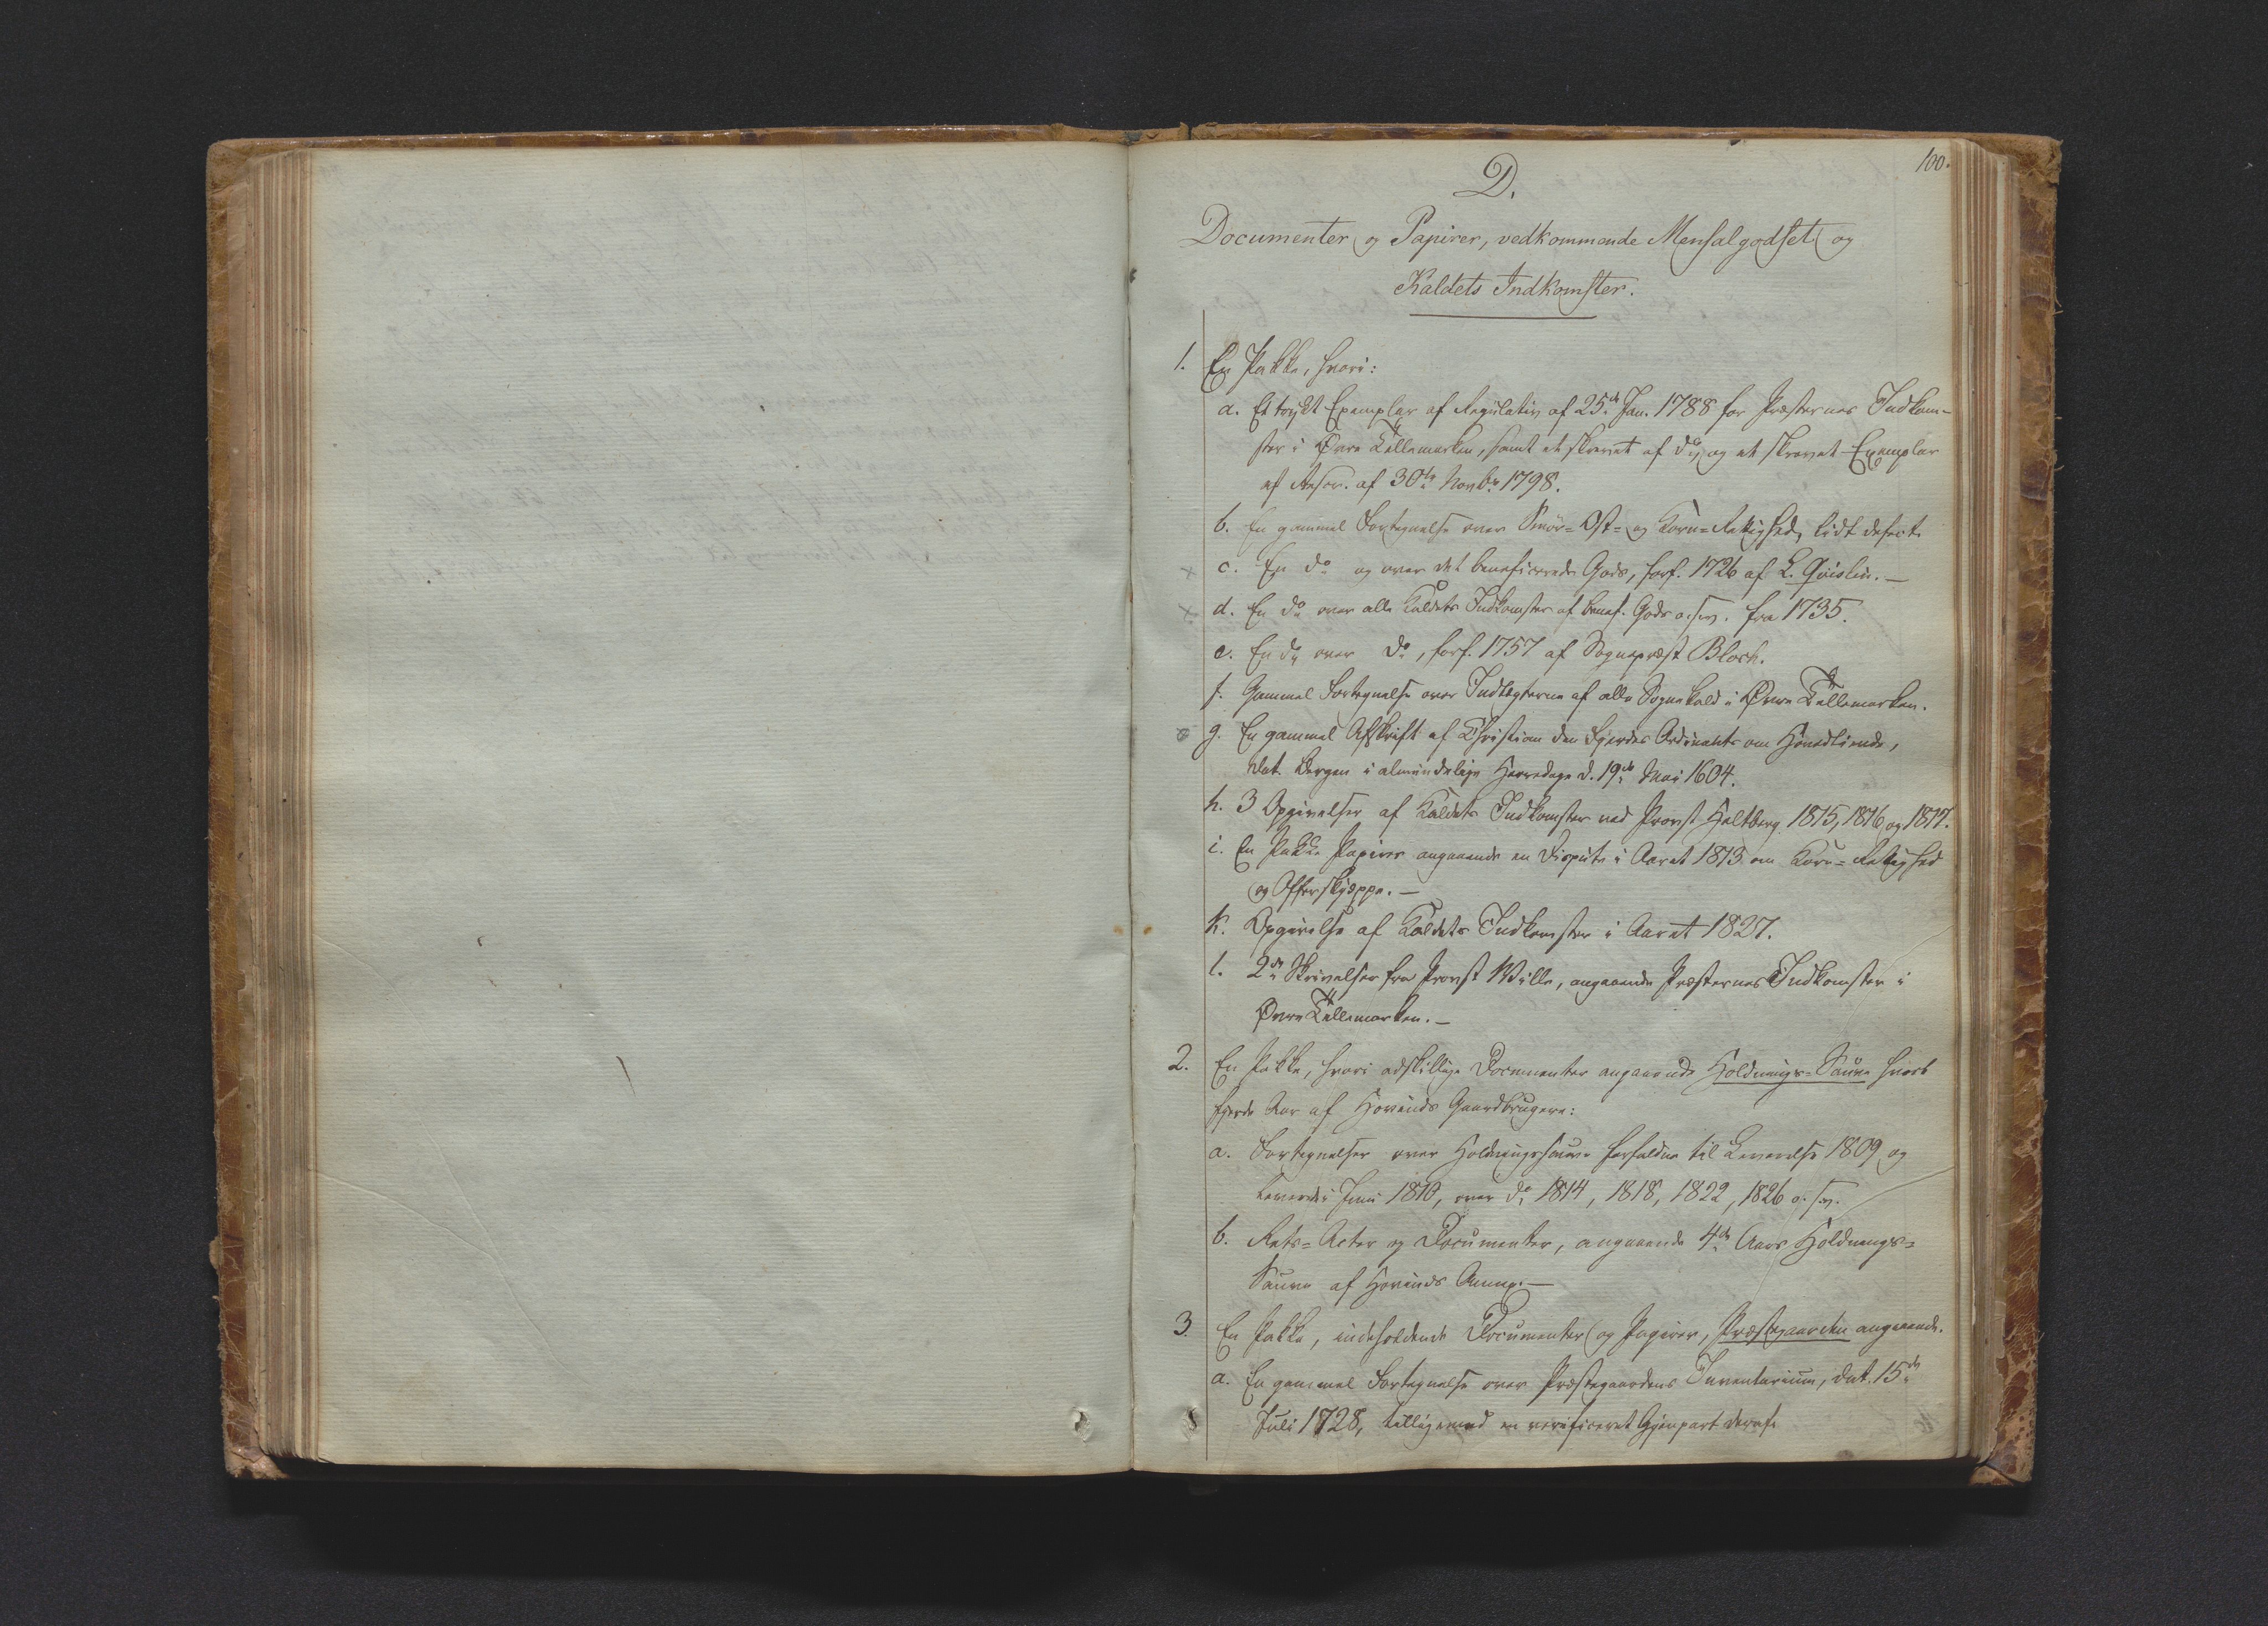 100.
D.
Documenter og Papirer, vedkommende Mensalgodset og
Kaldets Indkomster.
1. En Pakke, hvori:
a. Et trykt Exemplar af Regulativ af 25de Jan. 1788 for Præsternes Indkom-
ster i Øvre Tellemarken, samt et skrevet af do, og et skrevet Exemplar
af Rescr. af 30te Novbr 1798.
b. En gammel Fortegnelse over Smör- Ost- og Korn-Rettighed, lidt defect.
c. En do og over det beneficerede Gods, forf. 1726 af L. Qvislin. —
d. En do over alle Kaldets Indkomster af benef. Gods o. s. v. fra 1735.
e. En do over do, forf. 1757 af Sognepræst Bloch.
f. Gammel Fortegnelse over Indtægterne af alle Sognekald i Øvre Tellemarken.
g. En gammel Afskrift af Christian den Fjerdes Ordinants om Hovedtiende,
dat. Bergen i almindelige Herredage d. 19de Mai 1604.
h. 3 Opgivelser af Kaldets Indkomster ved Provst Holtberg 1815, 1816 og 1817.
i. En Pakke Papirer angaaende en Dispute i Aaret 1813 om Korn-Rettighed
og Offerskjæppe. —
k. Opgivelse af Kaldets Indkomster i Aaret 1827.
l. 2de Skrivelser fra Provst Wille, angaaende Præsternes Indkomster i
Øvre Tellemarken. —
2. En Pakke, hvori adskillige Documenter angaaende Holdnings-Sauen hvert
fjerde Aar af Hovinds Gaardbrugere:
a. Fortegnelser over Holdningssauen forfalden til Leverelse 1809 og
leveret i Juni 1810, over do 1814, 1818, 1822, 1826 o. s. v.
b. Rets-Acter og Documenter, angaaende 4de Aars Holdnings-
Sauen af Hovinds Annex. —
3. En Pakke, indeholdende Documenter og Papirer, Præstegaarden angaaende.
a. En gammel Fortegnelse over Præstegaardens Inventarium, dat. 15de
Juli 1728, tilligemed en verificeret Gjenpart deraf.